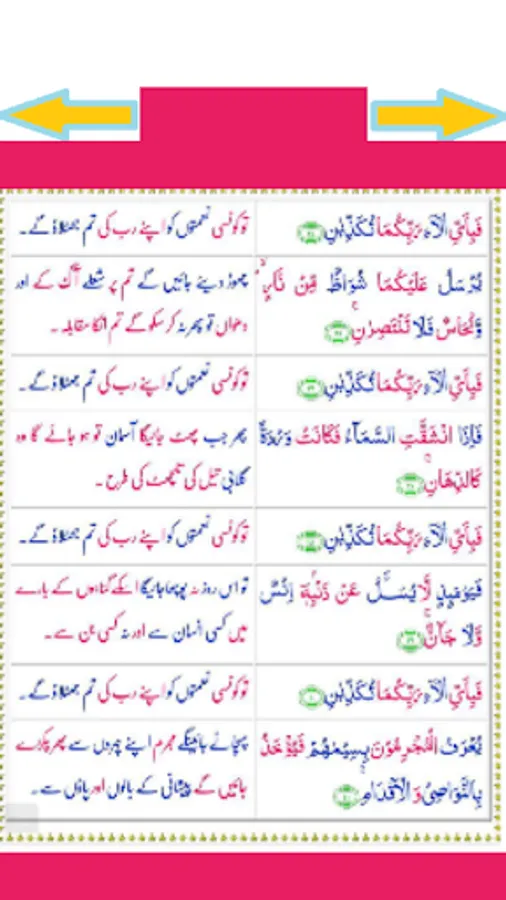 فَبِاَيِّ اٰلَآءِ رَبِّكُمَا تُكَذِّبٰنِ
تو کونسی نعمتوں کو اپنے رب کی تم جھٹلاؤ گے۔
يُرْسَلُ عَلَيْكُمَا شُوَاظٌ مِّنْ نَّارٍ
وَّنُحَاسٌ فَلَا تَنْتَصِرٰنِ
چھوڑ دیئے جائیں گے تم پر شعلے آگ کے اور
دھواں تو پھر نہ کر سکو گے تم انکا مقابلہ۔
فَبِاَيِّ اٰلَآءِ رَبِّكُمَا تُكَذِّبٰنِ
تو کونسی نعمتوں کو اپنے رب کی تم جھٹلاؤ گے۔
فَاِذَا انْشَقَّتِ السَّمَآءُ فَكَانَتْ وَرْدَةً
كَالدِّهَانِ
پھر جب پھٹ جائیگا آسمان تو ہو جائے گا وہ
گلابی تیل کی تلچھٹ کی طرح۔
فَبِاَيِّ اٰلَآءِ رَبِّكُمَا تُكَذِّبٰنِ
تو کونسی نعمتوں کو اپنے رب کی تم جھٹلاؤ گے۔
فَيَوْمَئِذٍ لَّا يُسْـَٔلُ عَنْ ذَنْۢبِهٖٓ اِنْسٌ
وَّلَا جَآنٌّ
تو اس روز نہ پوچھا جائیگا انکے گناہوں کے بارے
میں کسی انسان سے اور نہ کسی جن سے۔
فَبِاَيِّ اٰلَآءِ رَبِّكُمَا تُكَذِّبٰنِ
تو کونسی نعمتوں کو اپنے رب کی تم جھٹلاؤ گے۔
يُعْرَفُ الْمُجْرِمُوْنَ بِسِيْمٰهُمْ فَيُؤْخَذُ
بِالنَّوَاصِيْ وَ الْاَقْدَامِ
پہچانے جائینگے مجرم اپنے چہروں سے پھر پکڑے
جائیں گے پیشانی کے بالوں اور پاؤں سے۔